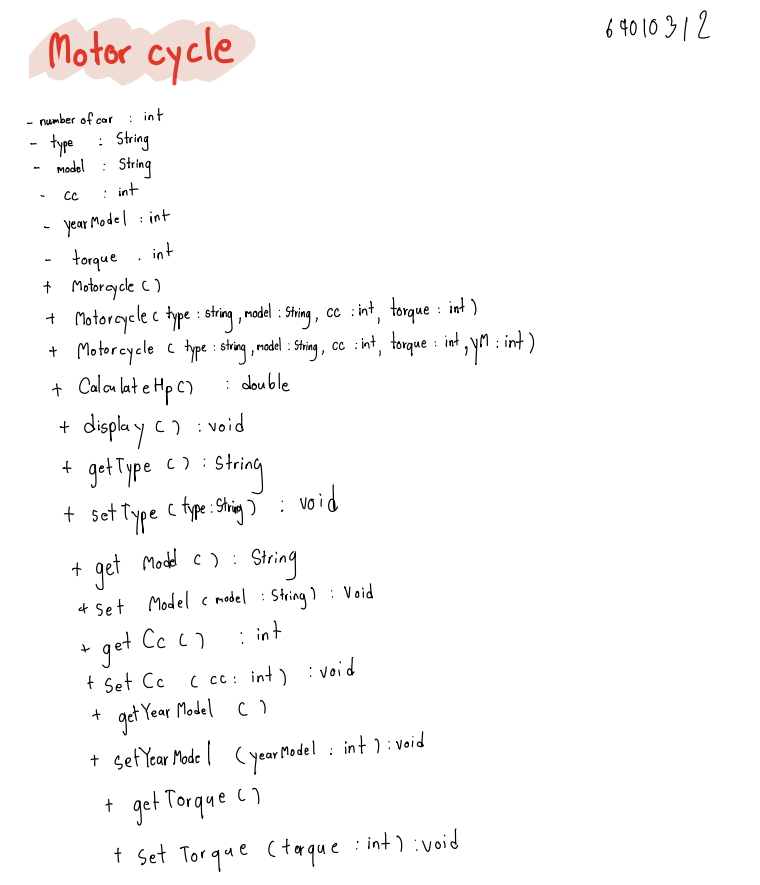 Motor cycle
64010312
- number of car : int
- type : String
- model : String
- cc : int
- yearModel : int
- torque . int
+ Motorcycle ()
+ Motorcycle ( type : string , model : String , cc : int , torque : int )
+ Motorcycle ( type : string , model : String , cc : int , torque : int , yM : int )
+ CalculateHp () : double
+ display () : void
+ getType () : String
+ setType ( type : String ) : void
+ get Model () : String
+ set Model ( model : String ) : Void
+ get Cc () : int
+ set Cc ( cc : int ) : void
+ getYearModel ()
+ setYearModel ( yearModel : int ) : void
+ getTorque ()
+ set Torque ( torque : int ) : void